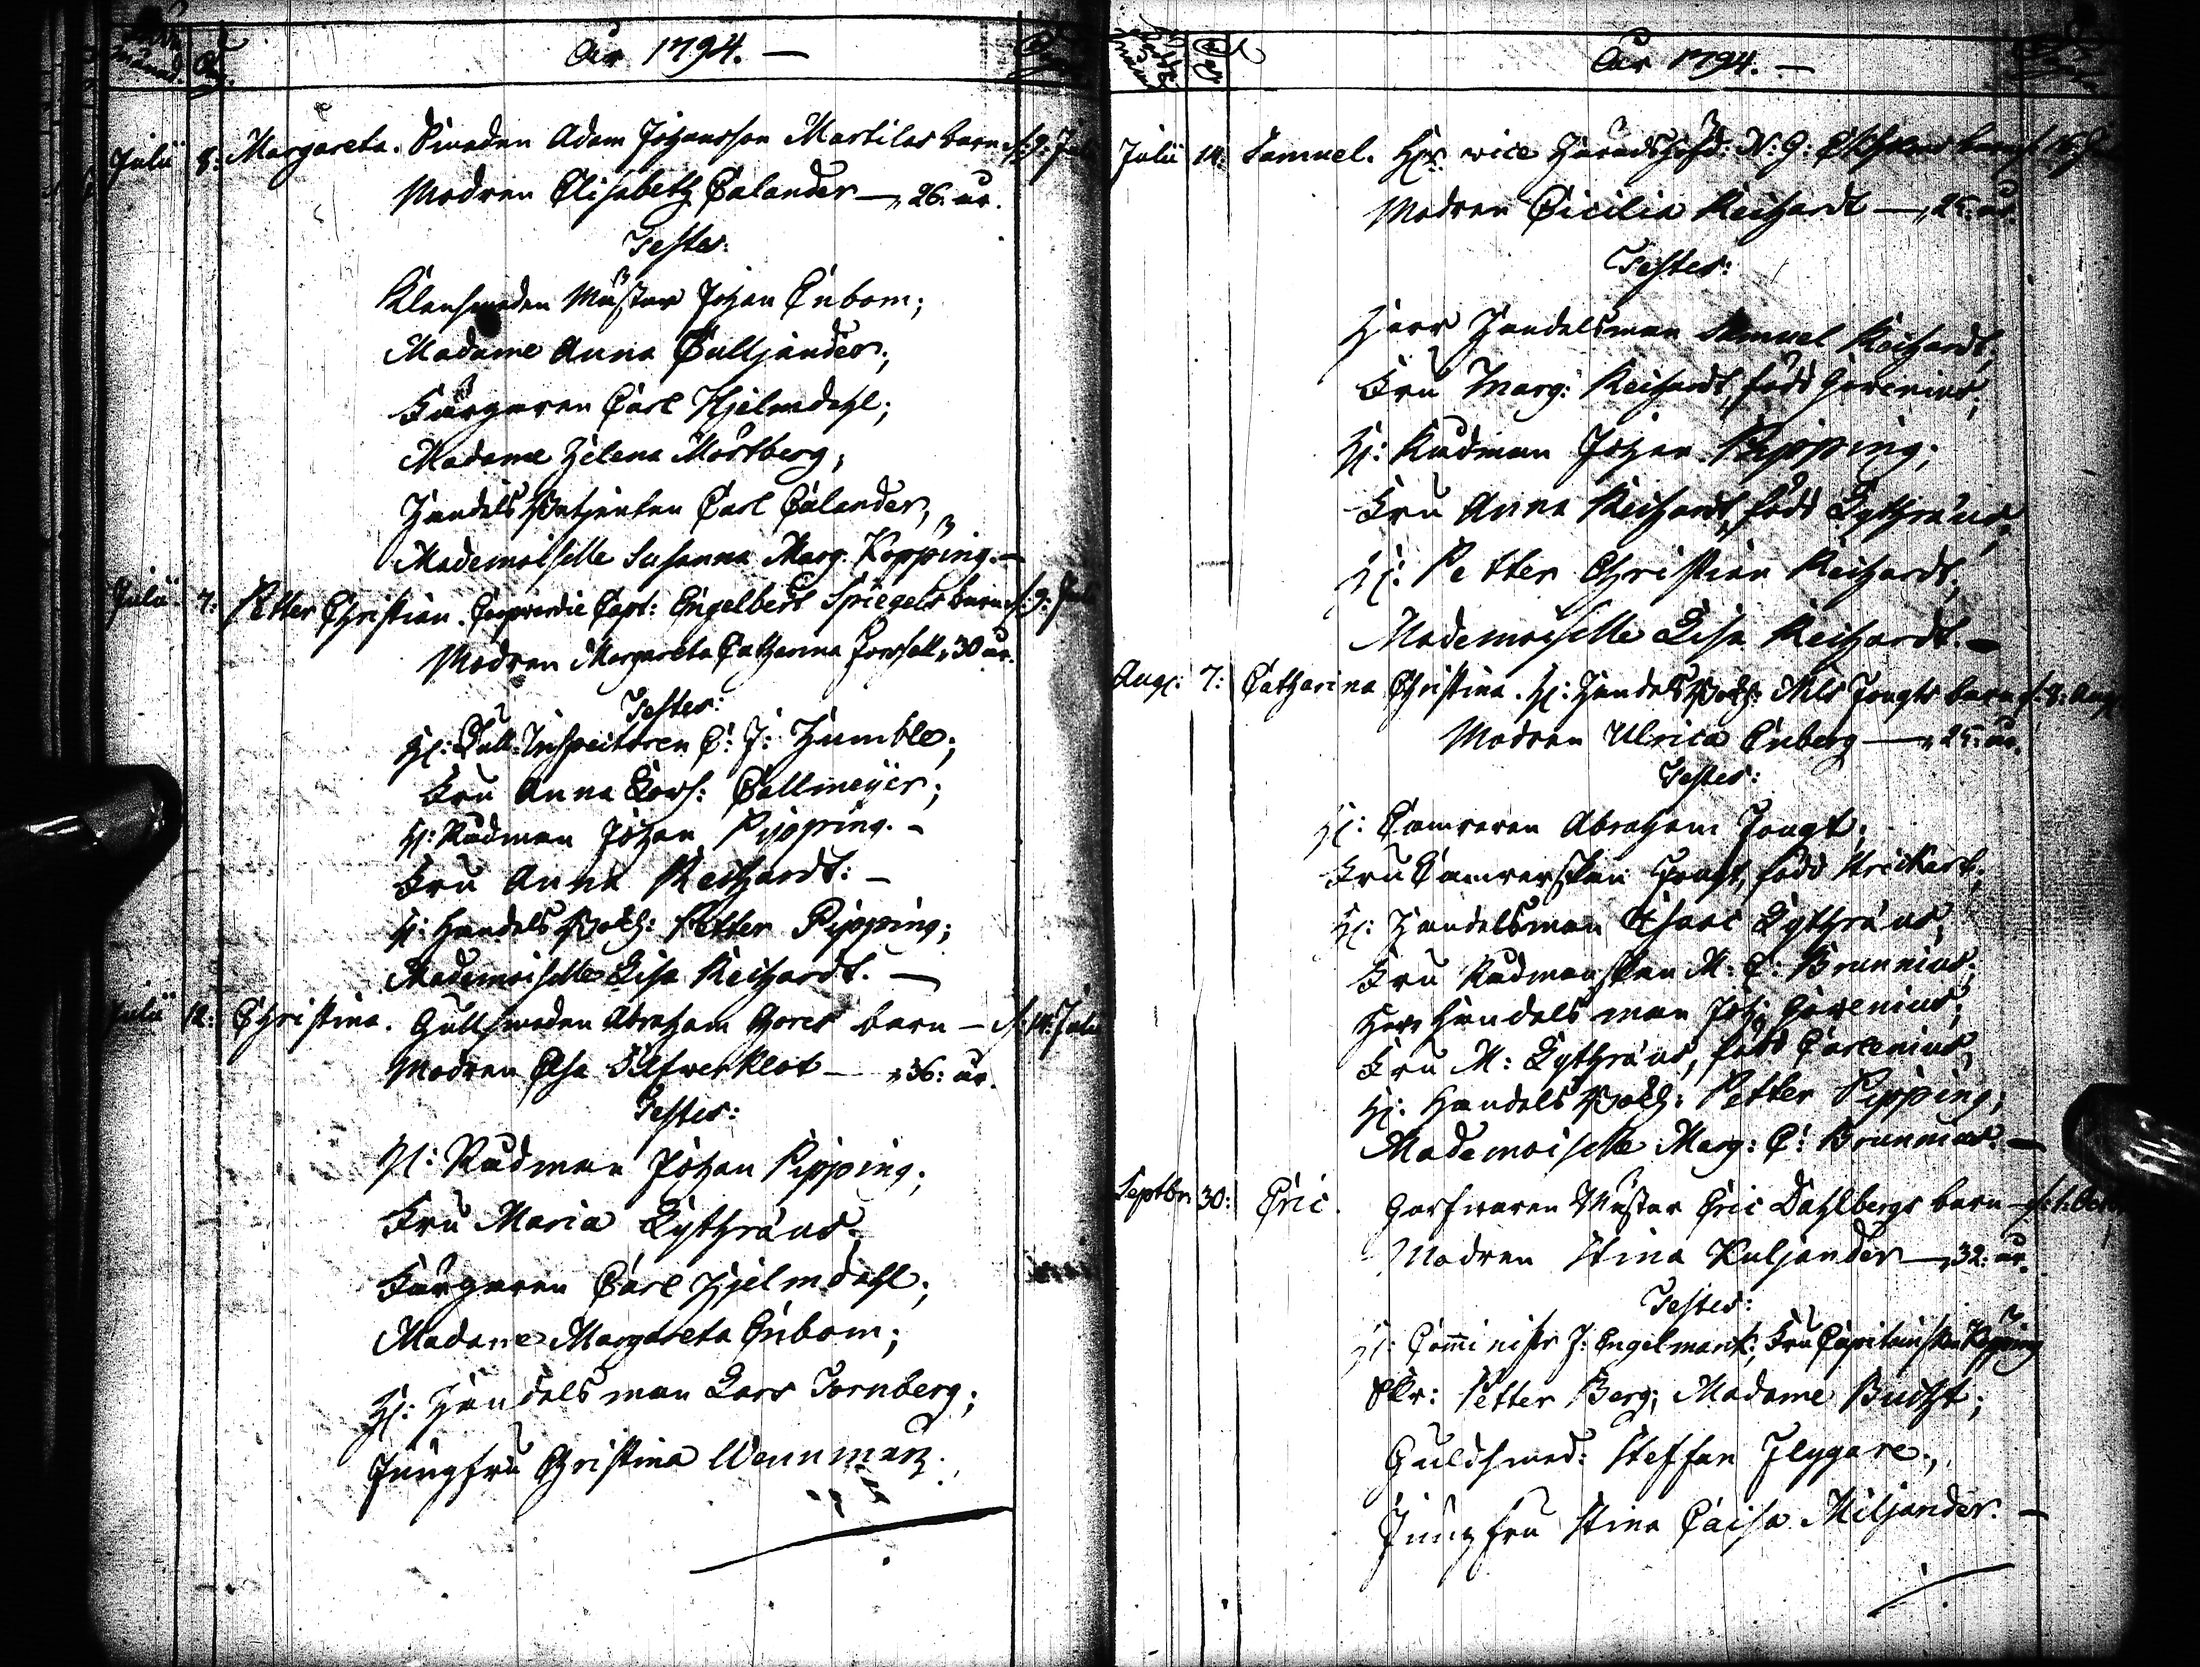 År 1794. —
Julii 8: Margareta. Smeden Adam Johansson Martilas barn d. 9: Julii
Modren Elisabeth Calander — 26. år.
Testes:
Klensmeden Mäster Johan Enbom;
Madame Anna Gulljander;
Färgaren Carl Hjelmdahl;
Madame Helena Mörtberg;
Handels Betjenten Carl Calander,
Mademoiselle Susanna Marg. Kopping. —
Julii 7: Petter Christian. Capt: Engelbert Spiegels barn d. 9: Julii
Modren Margareta Catharina Forssell, 30 år.
Testes:
H: Tull-Inspectoren C: J: Humble;
Fru Anna Callmeijer;
H: Rådman Johan Pipping. —
Fru Anna Reichardt: —
H: Handels Bokh: Petter Pipping;
Mademoiselle Lisa Reichardt. —
Julii 12: Christina. Gullsmeden Abraham barn — d. 14: Julii
Modren Elsa Silfwerklot — 36: år.
Testes:
H: Rådman Johan Pipping;
Fru Maria Lythræus;
Färgaren Carl Hjelmdahl;
Madame Margareta Enbom;
H: Handelsman Lars Tornberg;
Jungfru Christina Wennman
År 1794. —
Julii 14: Samuel. Hr: vice Häradshöfd: N: G: barn
Modren Cicilia Reichardt — 25: år.
Testes:
Herr Handelsman Samuel Reichardt;
Fru Marg: Reichardt, född
H: Rådman Johan Pipping;
Fru Anna Reichardt, född Lythræus;
H: Petter Christian Reichardt;
Mademoiselle Lisa Reichardt. —
Aug: 7: Catharina Christina. H: Handels Bokh: Nils Jongts barn d. 8: Aug:
Modren Ulrica Enberg — 25: år.
Testes:
H: Camreren Abraham Jongt;
Fru Camrerskan Jongt, född
H: Handelsman Isaac Lythræus;
Fru Rådmanskan M: C: Brunnius;
Herr Handelsman Joh:
Fru M: Lythræus, född
H: Handels Bokh: Petter Pipping;
Mademoiselle Marg: C: Brunnius. —
Septbr: 30: Eric. Garfwaren Mäster Eric Dahlbergs barn —
Modren Stina Kuljander — 32: år.
Testes:
H: Comminister J: Engelmark; Fru Capitainskan
Skr: Petter Berg; Madame Bucht;
Guldsmed: Steffan Flygare;
Jungfru Stina Caisa Miljander. —